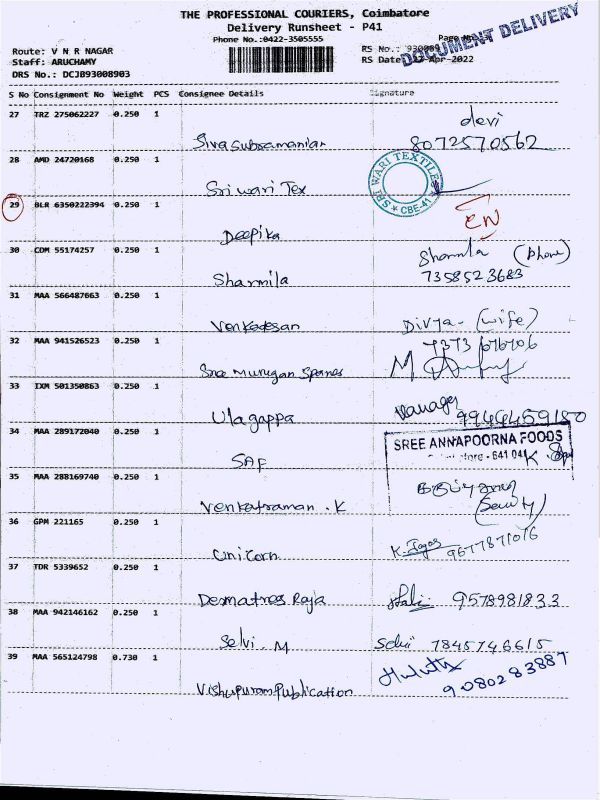 THE PROFESSIONAL COURIERS, Coimbatore
Delivery Runsheet - P41
Phone No.:0422-3505555
DOCUMENT DELIVERY
Route: V N R NAGAR
Staff: ARUCHAMY
DRS No.: DCJB93008903
RS No.:
RS Date: -Apr-2022
S No Consignment No Weight PCS Consignee Details Signature
27 TRZ 275062227 0.250 1
devi
Siva Subramanian 8072570562
28 AMD 24720168 0.250 1
Sri wari Tex
SRI WARI TEXTILES
CBE-41
29 BLR 6350222394 0.250 1
Deepika
30 COM 55174257 0.250 1
(phone)
Sharmila 7358523683
31 MAA 566487663 0.250 1
Venkadesan Divya - (wife)
32 MAA 941526523 0.250 1
Sree Murugan Spares
33 IXM 501350863 0.250 1
Ulagappa Manager 9944459180
34 MAA 289172040 0.250 1
SREE ANNAPOORNA FOODS
SAF - 641 04
35 MAA 288169740 0.250 1
Venkatraman . K
36 GPM 221165 0.250 1
Unicorn 9677871076
37 TDR 5339652 0.250 1
Raja 9578981833
38 MAA 942146162 0.250 1
Selvi . M 7845746615
39 MAA 565124798 0.730 1
Publication 9080283887